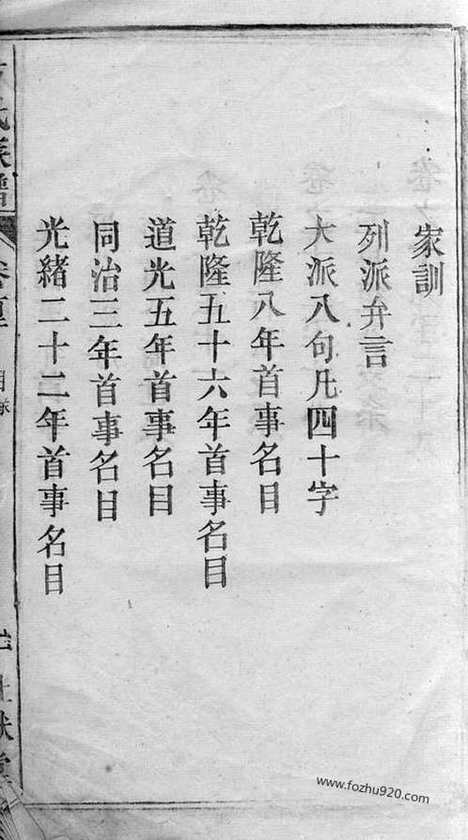 家訓
列派弁言
大派八句凡四十字
乾隆八年首事名目
乾隆五十六年首事名目
道光五年首事名目
同治三年首事名目
光緒二十二年首事名目
氏族譜
卷首
目錄
www.fozhu920.com